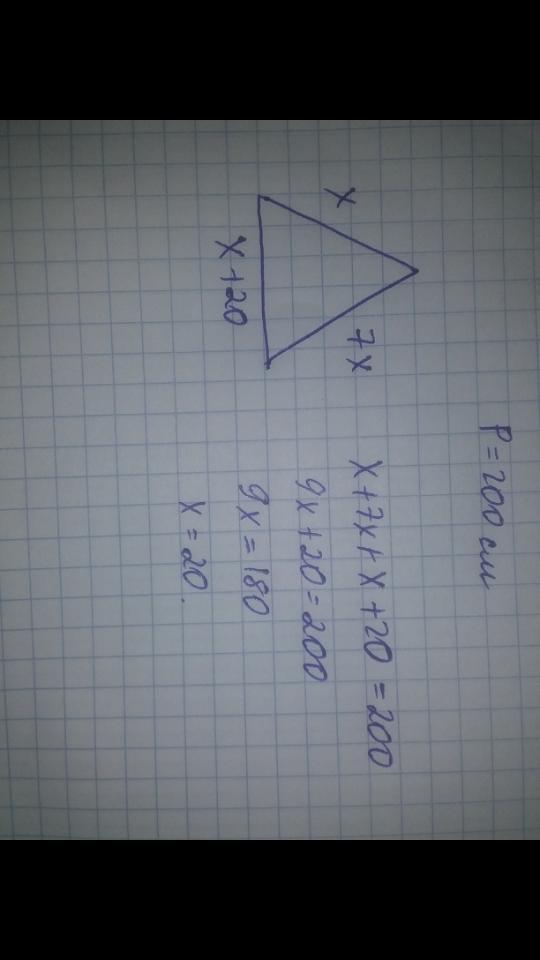 P = 200 см
x
7x
x + 20
x + 7x + x + 20 = 200
9x + 20 = 200
9x = 180
x = 20.